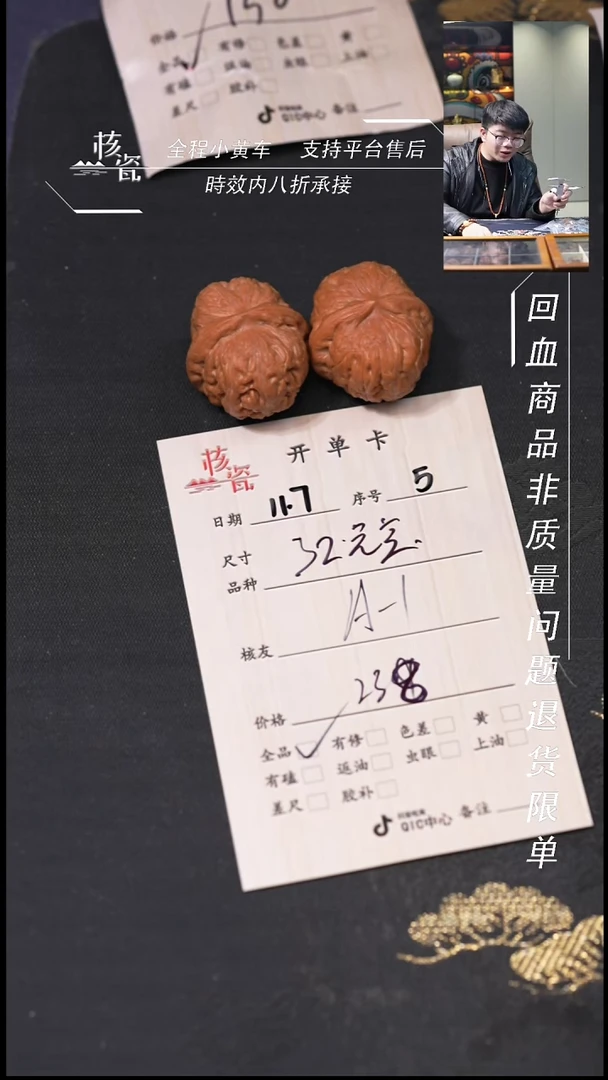 150
价格
全品 有修 色差 黄
有磕 返油 虫眼 上油
差尺 胶补
QIC中心 备注
核瓷
全程小黄车 支持平台售后
時效内八折承接
回血商品非质量问题退货限单
核瓷 开单卡
日期 11.7 序号 5
尺寸 32.元宝.
品种
核友 A-1
价格 238
全品 ✓ 有修 色差 黄
有磕 返油 虫眼 上油
差尺 胶补
QIC中心 备注